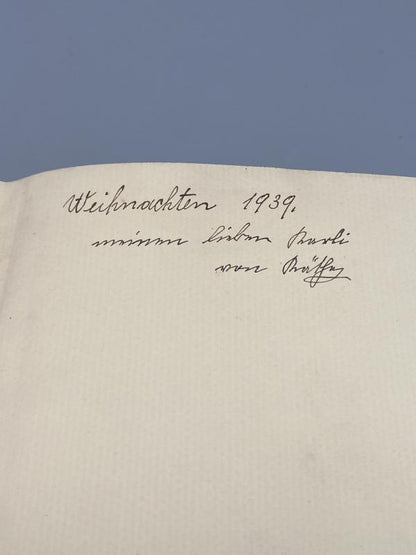 Weihnachten 1939.
meinen lieben Karli
von Käthe